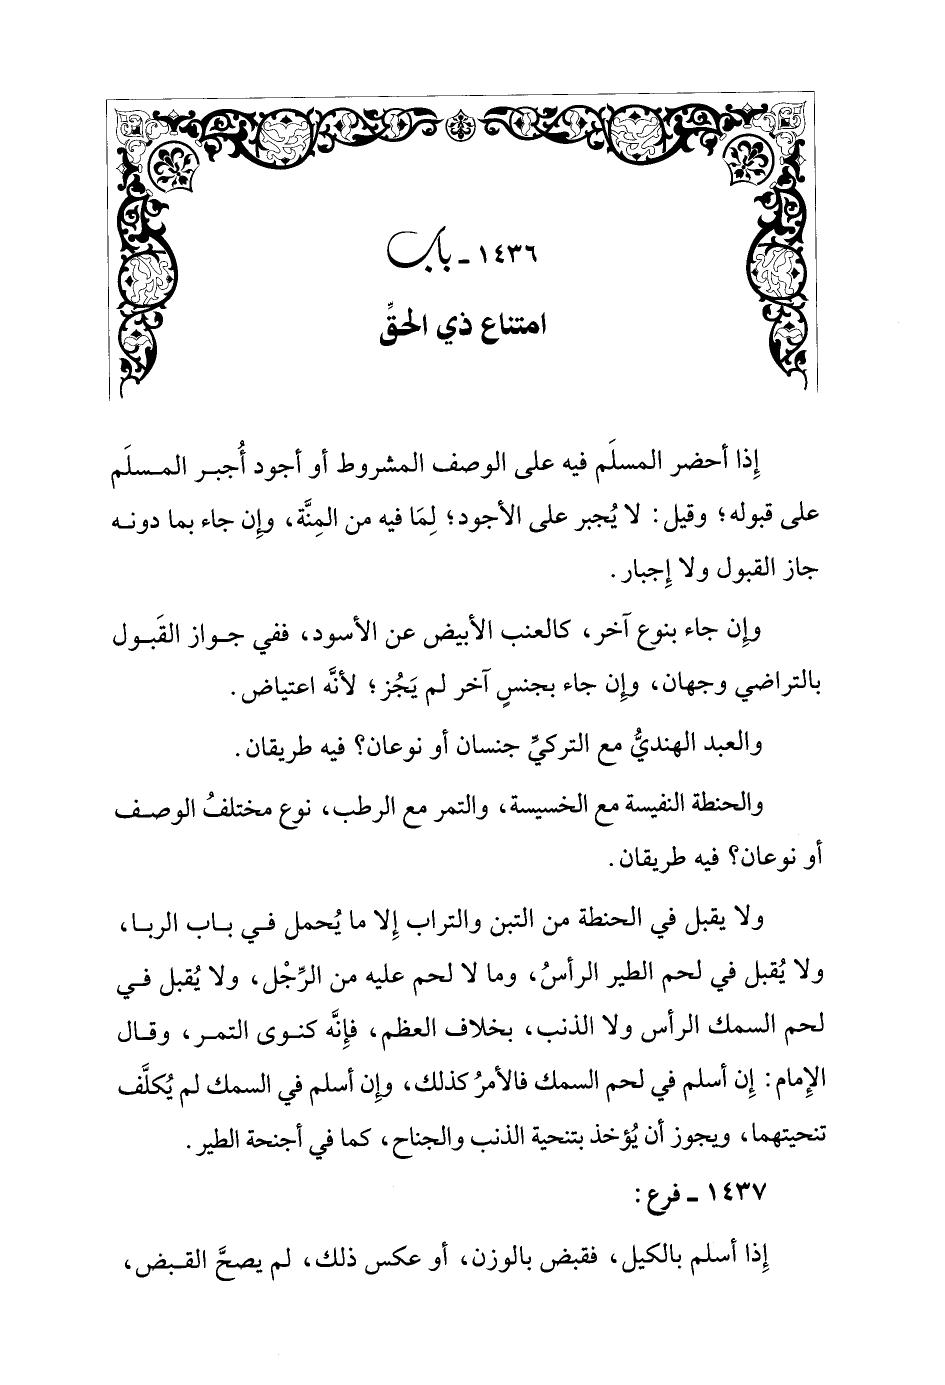 ١٤٣٦ - باب
امتناع ذي الحقِّ
إِذا أحضر المسلَم فيه على الوصف المشروط أو أجود أُجبر المسلَم
على قبوله؛ وقيل: لا يُجبر على الأجود؛ لِمَا فيه من المِنَّة، وإِن جاء بما دونه
جاز القبول ولا إِجبار.
وإِن جاء بنوع آخر، كالعنب الأبيض عن الأسود، ففي جواز القَبول
بالتراضي وجهان، وإِن جاء بجنسٍ آخر لم يَجُز؛ لأنَّه اعتياض.
والعبد الهنديُّ مع التركيِّ جنسان أو نوعان؟ فيه طريقان.
والحنطة النفيسة مع الخسيسة، والتمر مع الرطب، نوع مختلفُ الوصف
أو نوعان؟ فيه طريقان.
ولا يقبل في الحنطة من التبن والتراب إِلا ما يُحمل في باب الربا،
ولا يُقبل في لحم الطير الرأسُ، وما لا لحم عليه من الرِّجْل، ولا يُقبل في
لحم السمك الرأس ولا الذنب، بخلاف العظم، فإِنَّه كنوى التمر، وقال
الإِمام: إِن أسلم في لحم السمك فالأمرُ كذلك، وإِن أسلم في السمك لم يُكلَّف
تنحيتهما، ويجوز أن يُؤخذ بتنحية الذنب والجناح، كما في أجنحة الطير.
١٤٣٧ - فرع:
إِذا أسلم بالكيل، فقبض بالوزن، أو عكس ذلك، لم يصحَّ القبض،